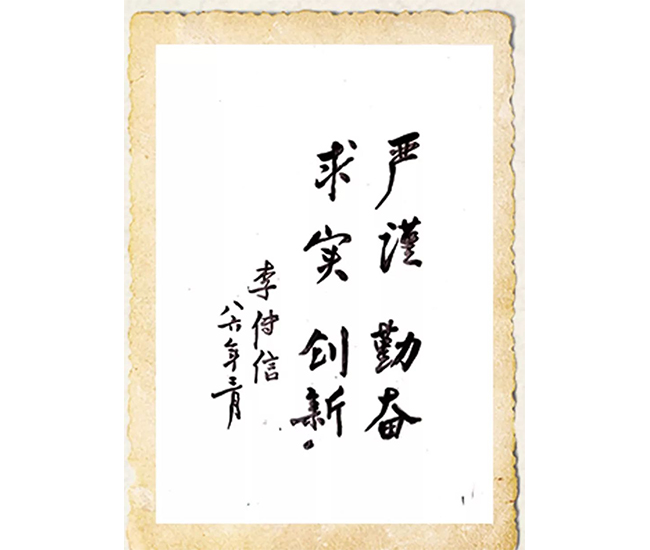 严谨 勤奋
求实 创新。
李待信
八六年三月